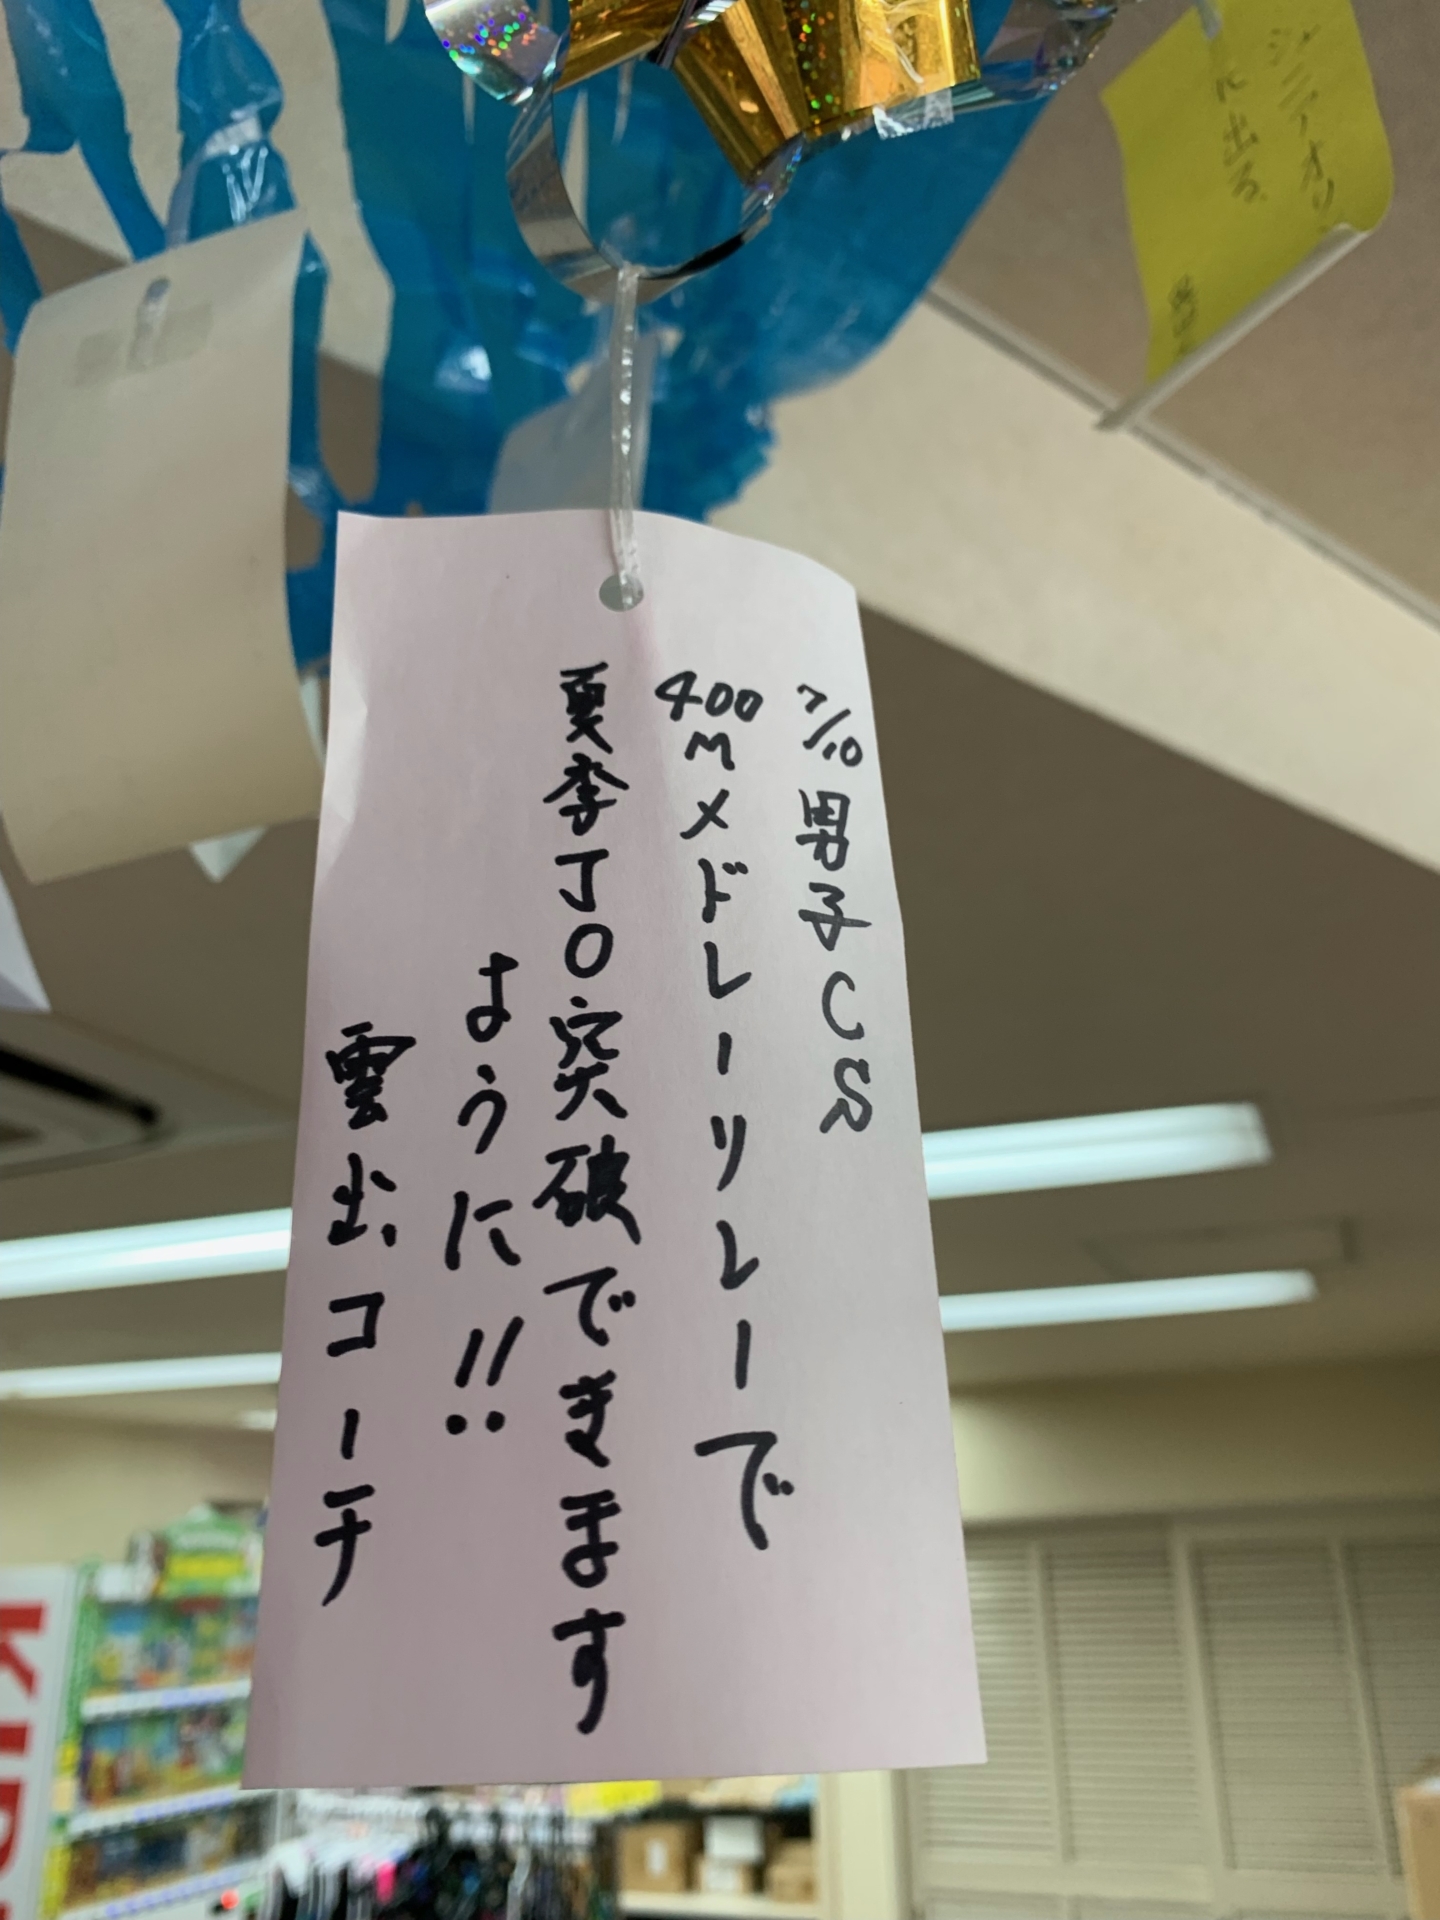 7/10 男子CS
400Mメドレーリレーで
夏季JO突破できます
ように!!
雲出コーチ
ジュニアオリ
に出る。